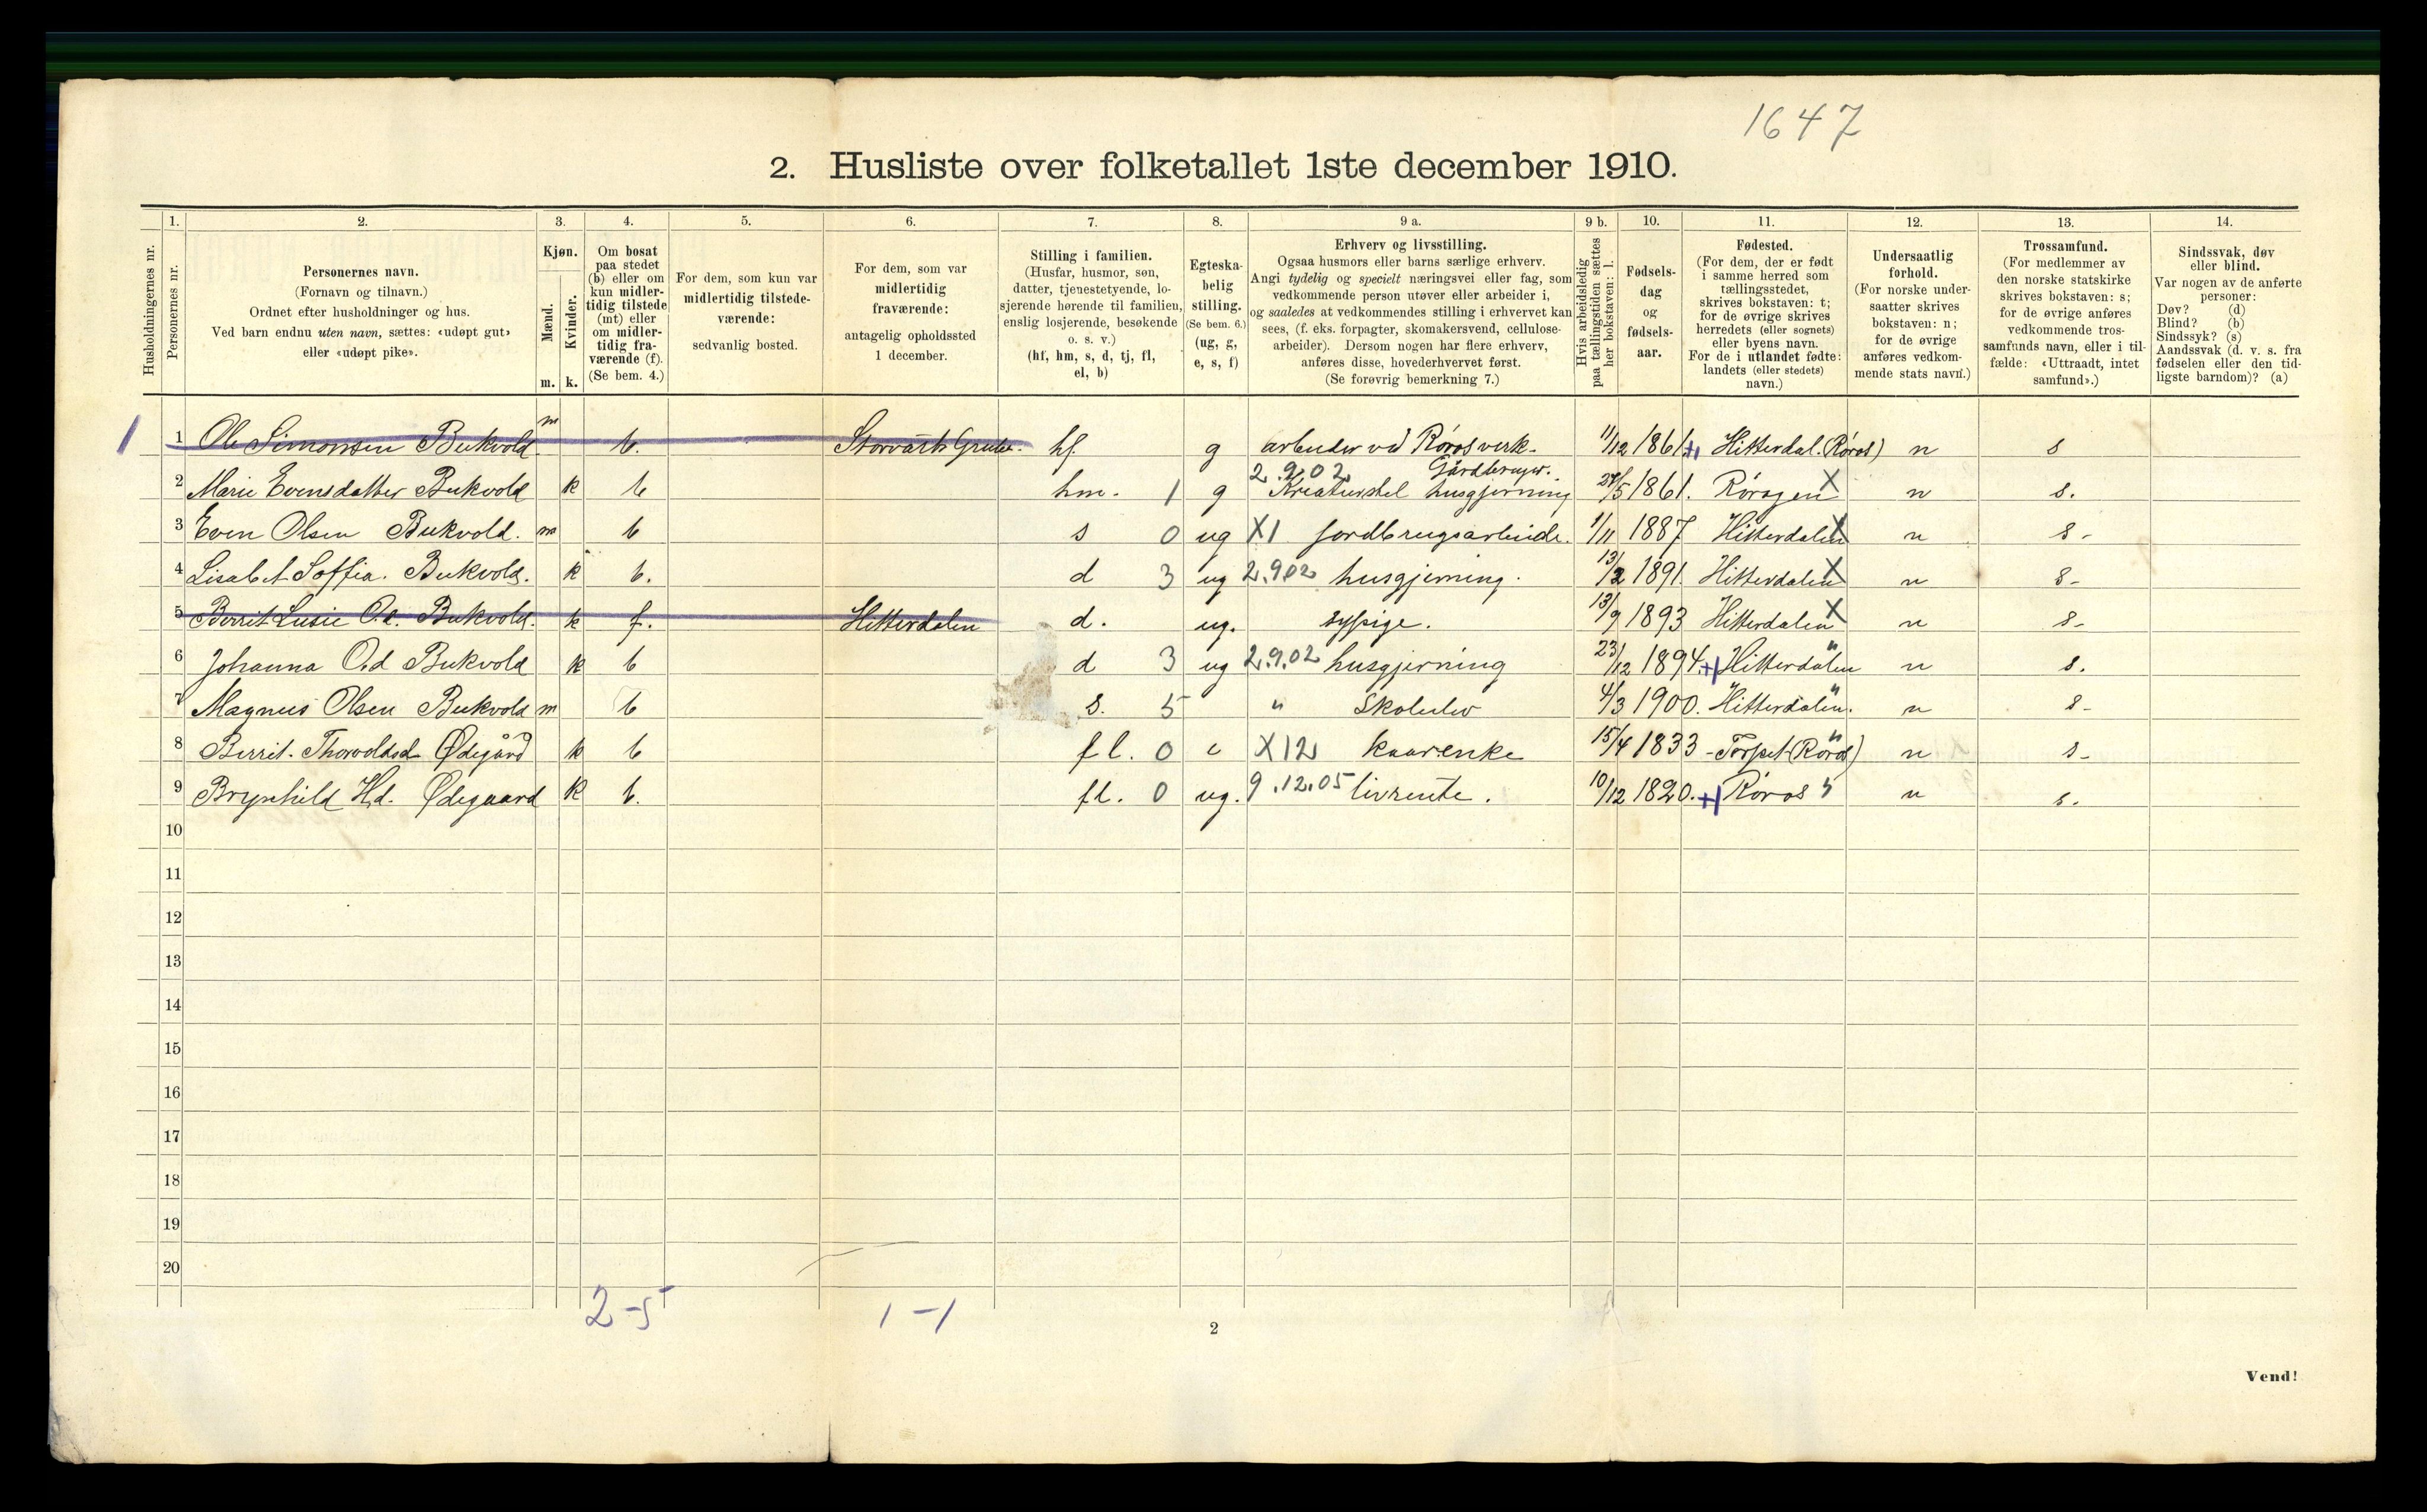 1647
2. Husliste over folketallet 1ste december 1910.
1. 2. 3. 4. 5. 6. 7. 8. 9 a. 9 b. 10. 11. 12. 13. 14.
Husholdningernes nr.
Personernes nr.
Personernes navn.
(Fornavn og tilnavn.)
Ordnet efter husholdninger og hus.
Ved barn endnu uten navn, sættes: «udøpt gut»
eller «udøpt pike».
Kjøn.
Mænd.
Kvinder.
m. k.
Om bosat
paa stedet
(b) eller om
kun midler-
tidig tilstede
(mt) eller
om midler-
tidig fra-
værende (f).
(Se bem. 4.)
For dem, som kun var
midlertidig tilstede-
værende:
sedvanlig bosted.
For dem, som var
midlertidig
fraværende:
antagelig opholdssted
1 december.
Stilling i familien.
(Husfar, husmor, søn,
datter, tjenestetyende, lo-
sjerende hørende til familien,
enslig losjerende, besøkende
o. s. v.)
(hf, hm, s, d, tj, fl,
el, b)
Egteska-
belig
stilling.
(Se bem. 6.)
(ug, g,
e, s, f)
Erhverv og livsstilling.
Ogsaa husmors eller barns særlige erhverv.
Angi tydelig og specielt næringsvei eller fag, som
vedkommende person utøver eller arbeider i,
og saaledes at vedkommendes stilling i erhvervet kan
sees, (f. eks. forpagter, skomakersvend, cellulose-
arbeider). Dersom nogen har flere erhverv,
anføres disse, hovederhvervet først.
(Se forøvrig bemerkning 7.)
Hvis arbeidsledig
paa tællingstiden sættes
her bokstaven: l.
Fødsels-
dag
og
fødsels-
aar.
Fødested.
(For dem, der er født
i samme herred som
tællingsstedet,
skrives bokstaven: t;
for de øvrige skrives
herredets (eller sognets)
eller byens navn.
For de i utlandet fødte:
landets (eller stedets)
navn.)
Undersaatlig
forhold.
(For norske under-
saatter skrives
bokstaven: n;
for de øvrige
anføres vedkom-
mende stats navn.)
Trossamfund.
(For medlemmer av
den norske statskirke
skrives bokstaven: s;
for de øvrige anføres
vedkommende tros-
samfunds navn, eller i til-
fælde: «Uttraadt, intet
samfund».)
Sindssvak, døv
eller blind.
Var nogen av de anførte
personer:
Døv? (d)
Blind? (b)
Sindssyk? (s)
Aandssvak (d. v. s. fra
fødselen eller den tid-
ligste barndom)? (a)
1 1 Ole Simonsen Bukvold. m b. Storvarts Grube. hf. g arbeider ved Røros verk. 11/12 1861 Hitterdal. (Røros) n s
Gårdbruger.
2 Marie Evensdatter Bukvold k b hm. 1 g 2.9.02 Kreaturstel husgjerning 24/5 1861. Rørosgen X n s.
3 Even Olsen Bukvold. m b s 0 ug X1 jordbrugsarbeide. 1/11 1887 Hitterdalen X n s-
4 Lisabet Soffia. Bukvold. k b. d 3 ug 2.9.02 husgjerning. 13/2 1891. Hitterdalen X n s-
5 Berrit Lusie O.d. Bukvold. k f. Hitterdalen d. ug. sypige. 13/9 1893 Hitterdalen X n s-
6 Johanna O.d Bukvold k b d 3 ug 2.9.02 husgjerning 23/12 1894. Hitterdalen n s.
7 Magnus Olsen Bukvold m b s. 5 " Skoleelev 4/3 1900. Hitterdalen. n s-
8 Berrit. Thorvoldsd. Ødegård k b fl. 0 e X12 kaarenke 15/4 1833 - Torpet (Røros) n s-
9 Brynhild H.d. Ødegaard k b. fl. 0 ug. 9.12.05 livrente. 10/12 1820. Røros n s.
10
11
12
13
14
15
16
17
18
19
20
2-5 1-1
2
Vend!